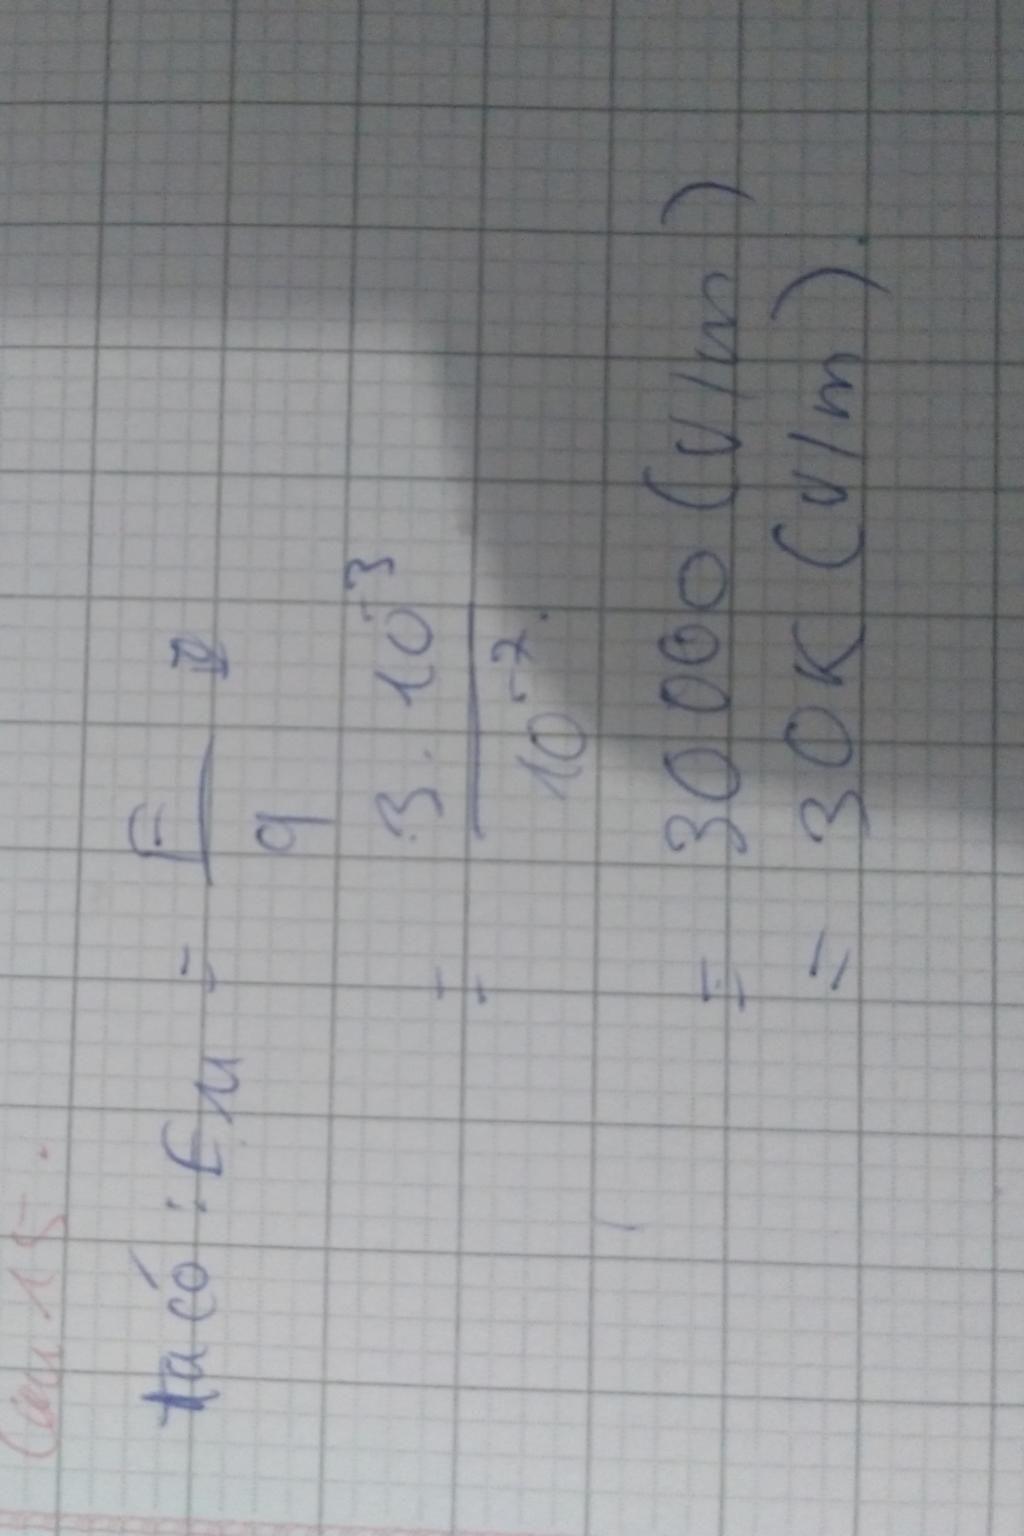 Câu 15.
ta có : EM = F
q
= 3.10⁻³
10⁻⁷.
= 30000 (V/m)
= 30K (V/m).